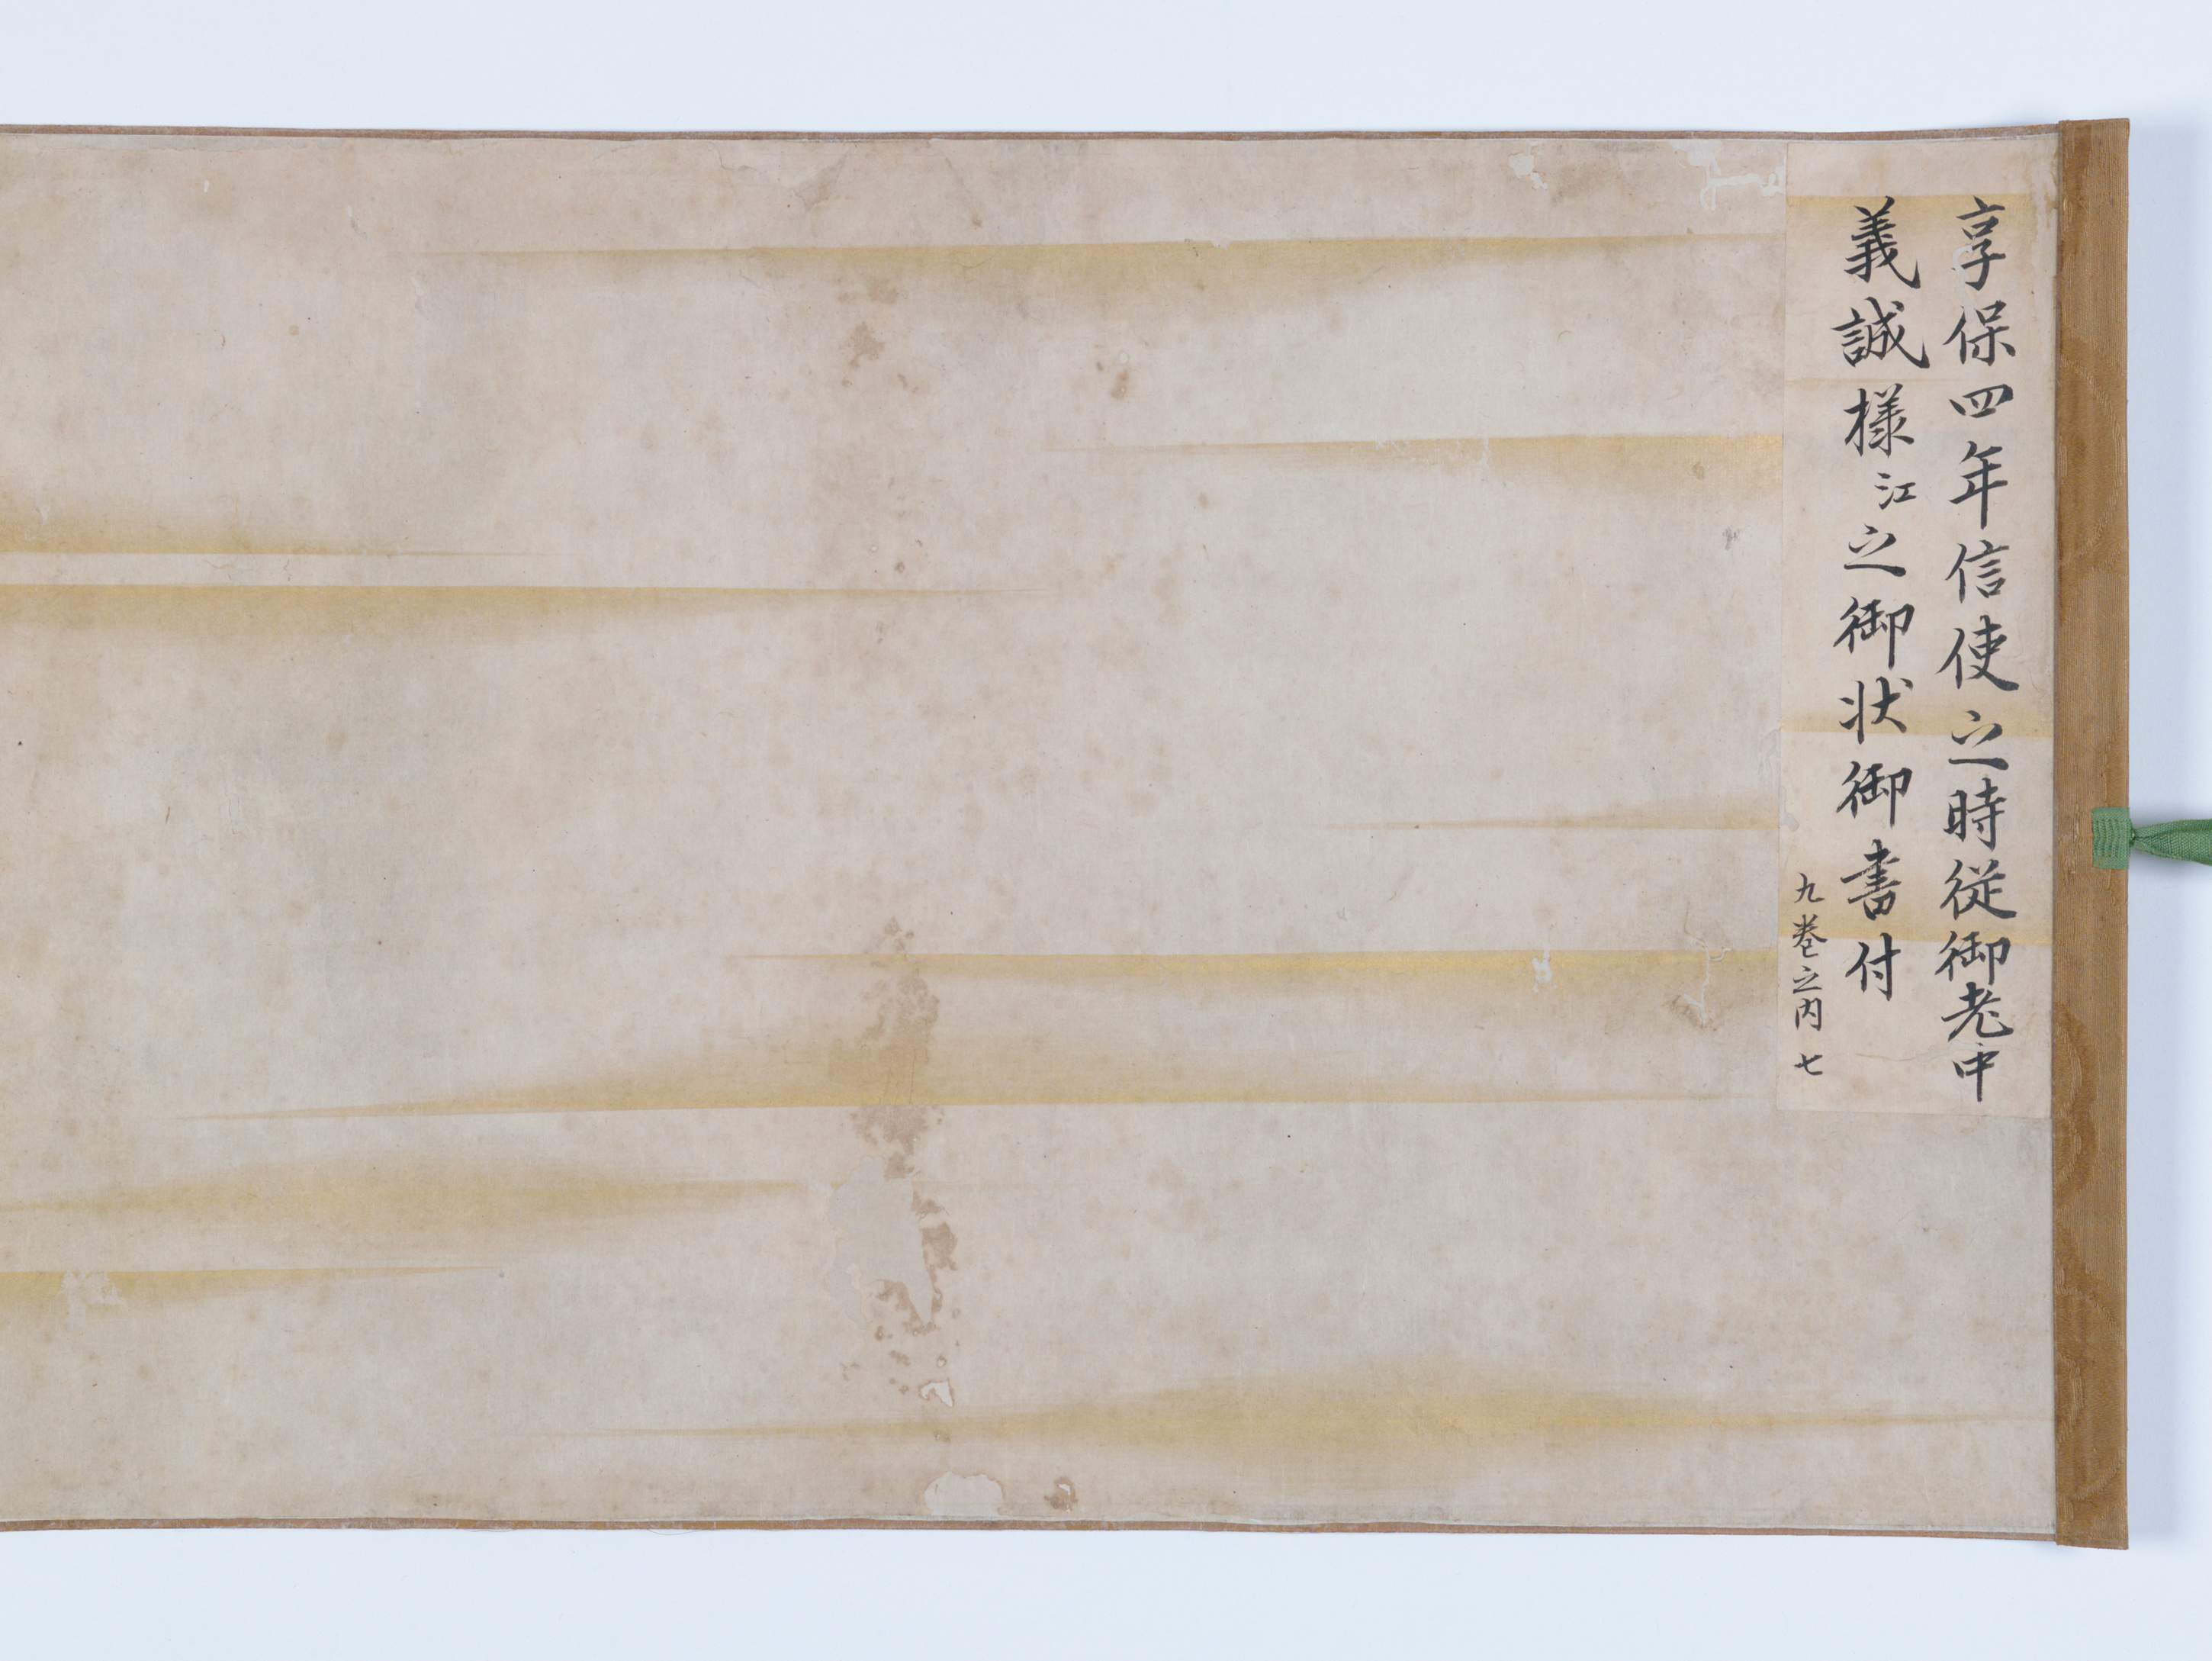 享保四年信使之時従御老中
義誠様江之御状御書付
九巻之内 七